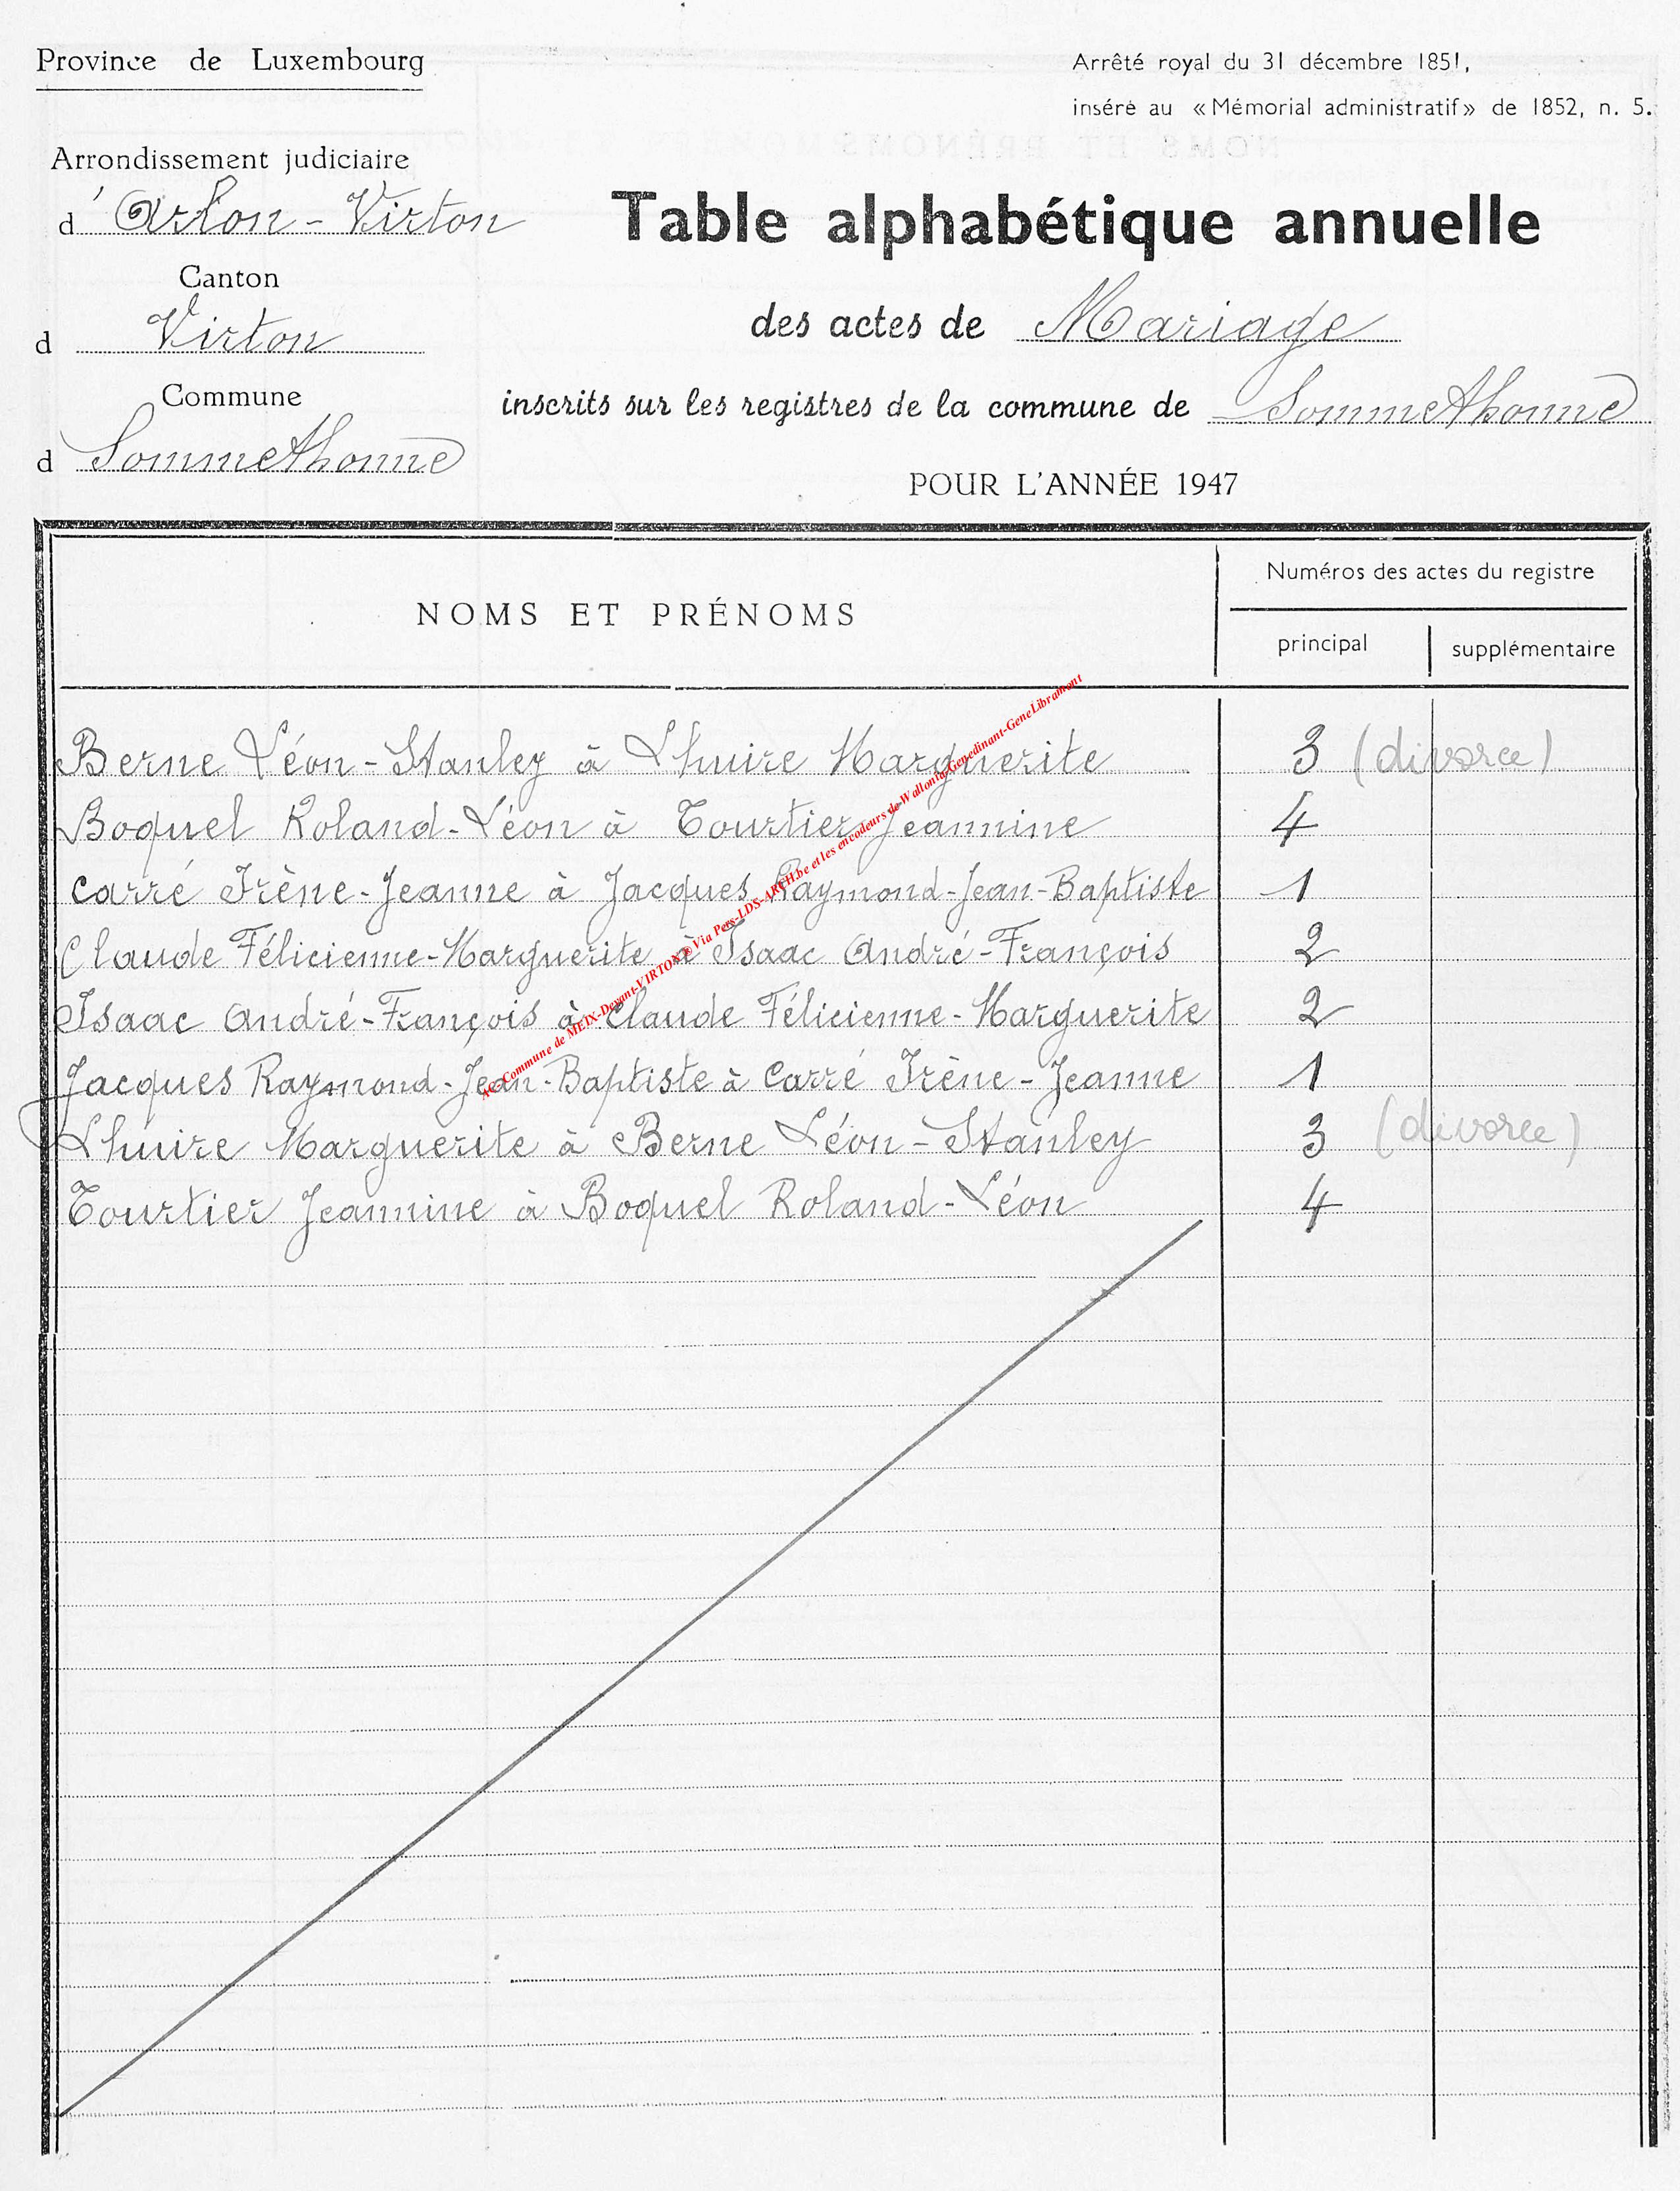 Province de Luxembourg
Arrêté royal du 31 décembre 1851,
inséré au «Mémorial administratif» de 1852, n. 5.
Arrondissement judiciaire
d'Arlon-Virton
Canton
d Virton
Commune
d Sommethonne
Table alphabétique annuelle
des actes de Mariage
inscrits sur les registres de la commune de Sommethonne
POUR L'ANNÉE 1947
NOMS ET PRÉNOMS
Numéros des actes du registre
principal supplémentaire
Berne Léon-Stanley à Lhuire Marguerite 3 (divorce)
Boquel Roland-Léon à Tourtier Jeannine 4
Carré Irène-Jeanne à Jacques Raymond-Jean-Baptiste 1
Claude Félicienne-Marguerite à Isaac André-François 2
Isaac André-François à Claude Félicienne-Marguerite 2
Jacques Raymond-Jean-Baptiste à Carré Irène-Jeanne 1
Lhuire Marguerite à Berne Léon-Stanley 3 (divorce)
Tourtier Jeannine à Boquel Roland-Léon 4
Commune de MEIX-Devant-VIRTON Via Pers-LDS-ARCH.be et les encodeurs de Wallonia-Genedinant-GeneLibramont